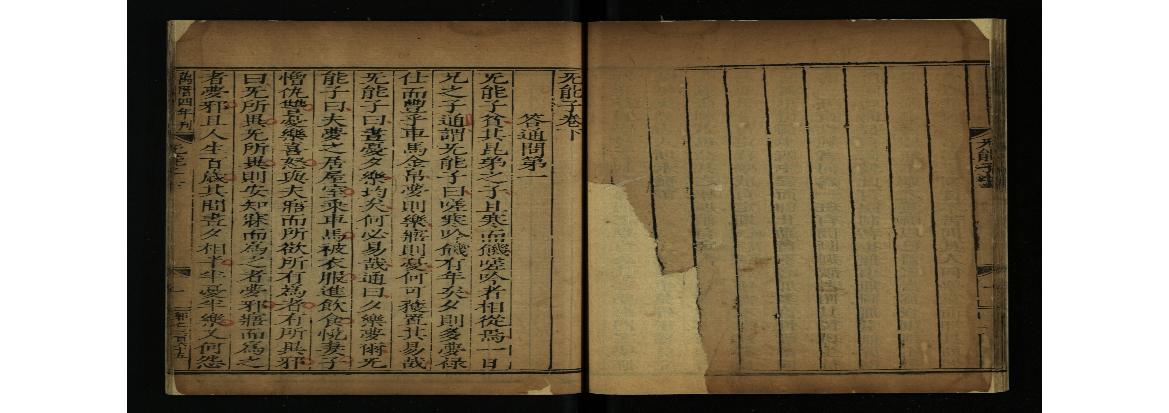 无能子
无能子卷下
答通問第一
无能子貧其昆弟之子且寒而饑嗟吟者相從焉一日
兄之子通謂无能子曰嗟寒吟饑有年矣夕則多夢祿
仕而豐乎車馬金帛夢則樂寤則憂何可獲置其易哉
无能子曰晝憂夕樂均矣何必易哉通曰夕樂夢爾无
能子曰夫夢之居屋室乘車馬被衣服進飲食悅妻子
憎仇讐憂樂喜怒與夫寤而所欲所有為者有所異邪
曰无所異无所異則安知寐而為之者夢邪寤而為之
者夢邪且人生百歲其間晝夕相半半憂半樂又何怨
萬曆四年刊